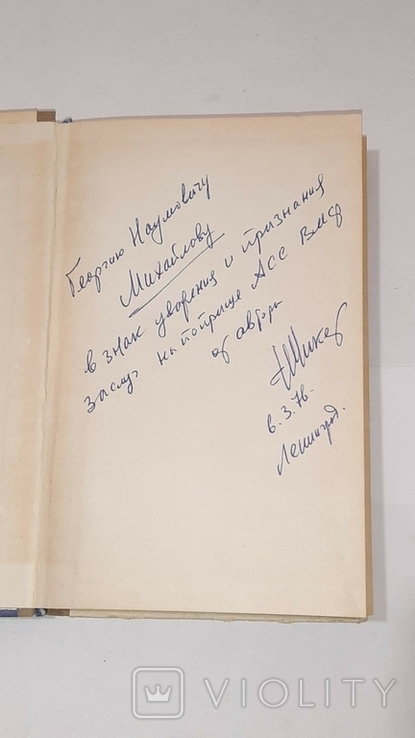 Георгию Наумовичу
Михайлову
в знак уважения и признания
заслуг на поприще АСС ВМФ
от автора
8.3.78.
Ленинград.
VIOLITY